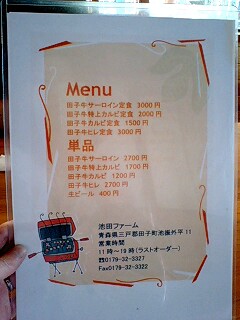 Menu
田子牛サーロイン定食 3000円
田子牛特上カルビ定食 2000円
田子牛カルビ定食 1500円
田子牛ヒレ定食 3000円
単品
田子牛サーロイン 2700円
田子牛特上カルビ 1700円
田子牛カルビ 1200円
田子牛ヒレ 2700円
生ビール 400円
池田ファーム
青森県三戸郡田子町池振外平11
営業時間
11時～19時(ラストオーダー)
☎0179-32-3327
Fax0179-32-3322